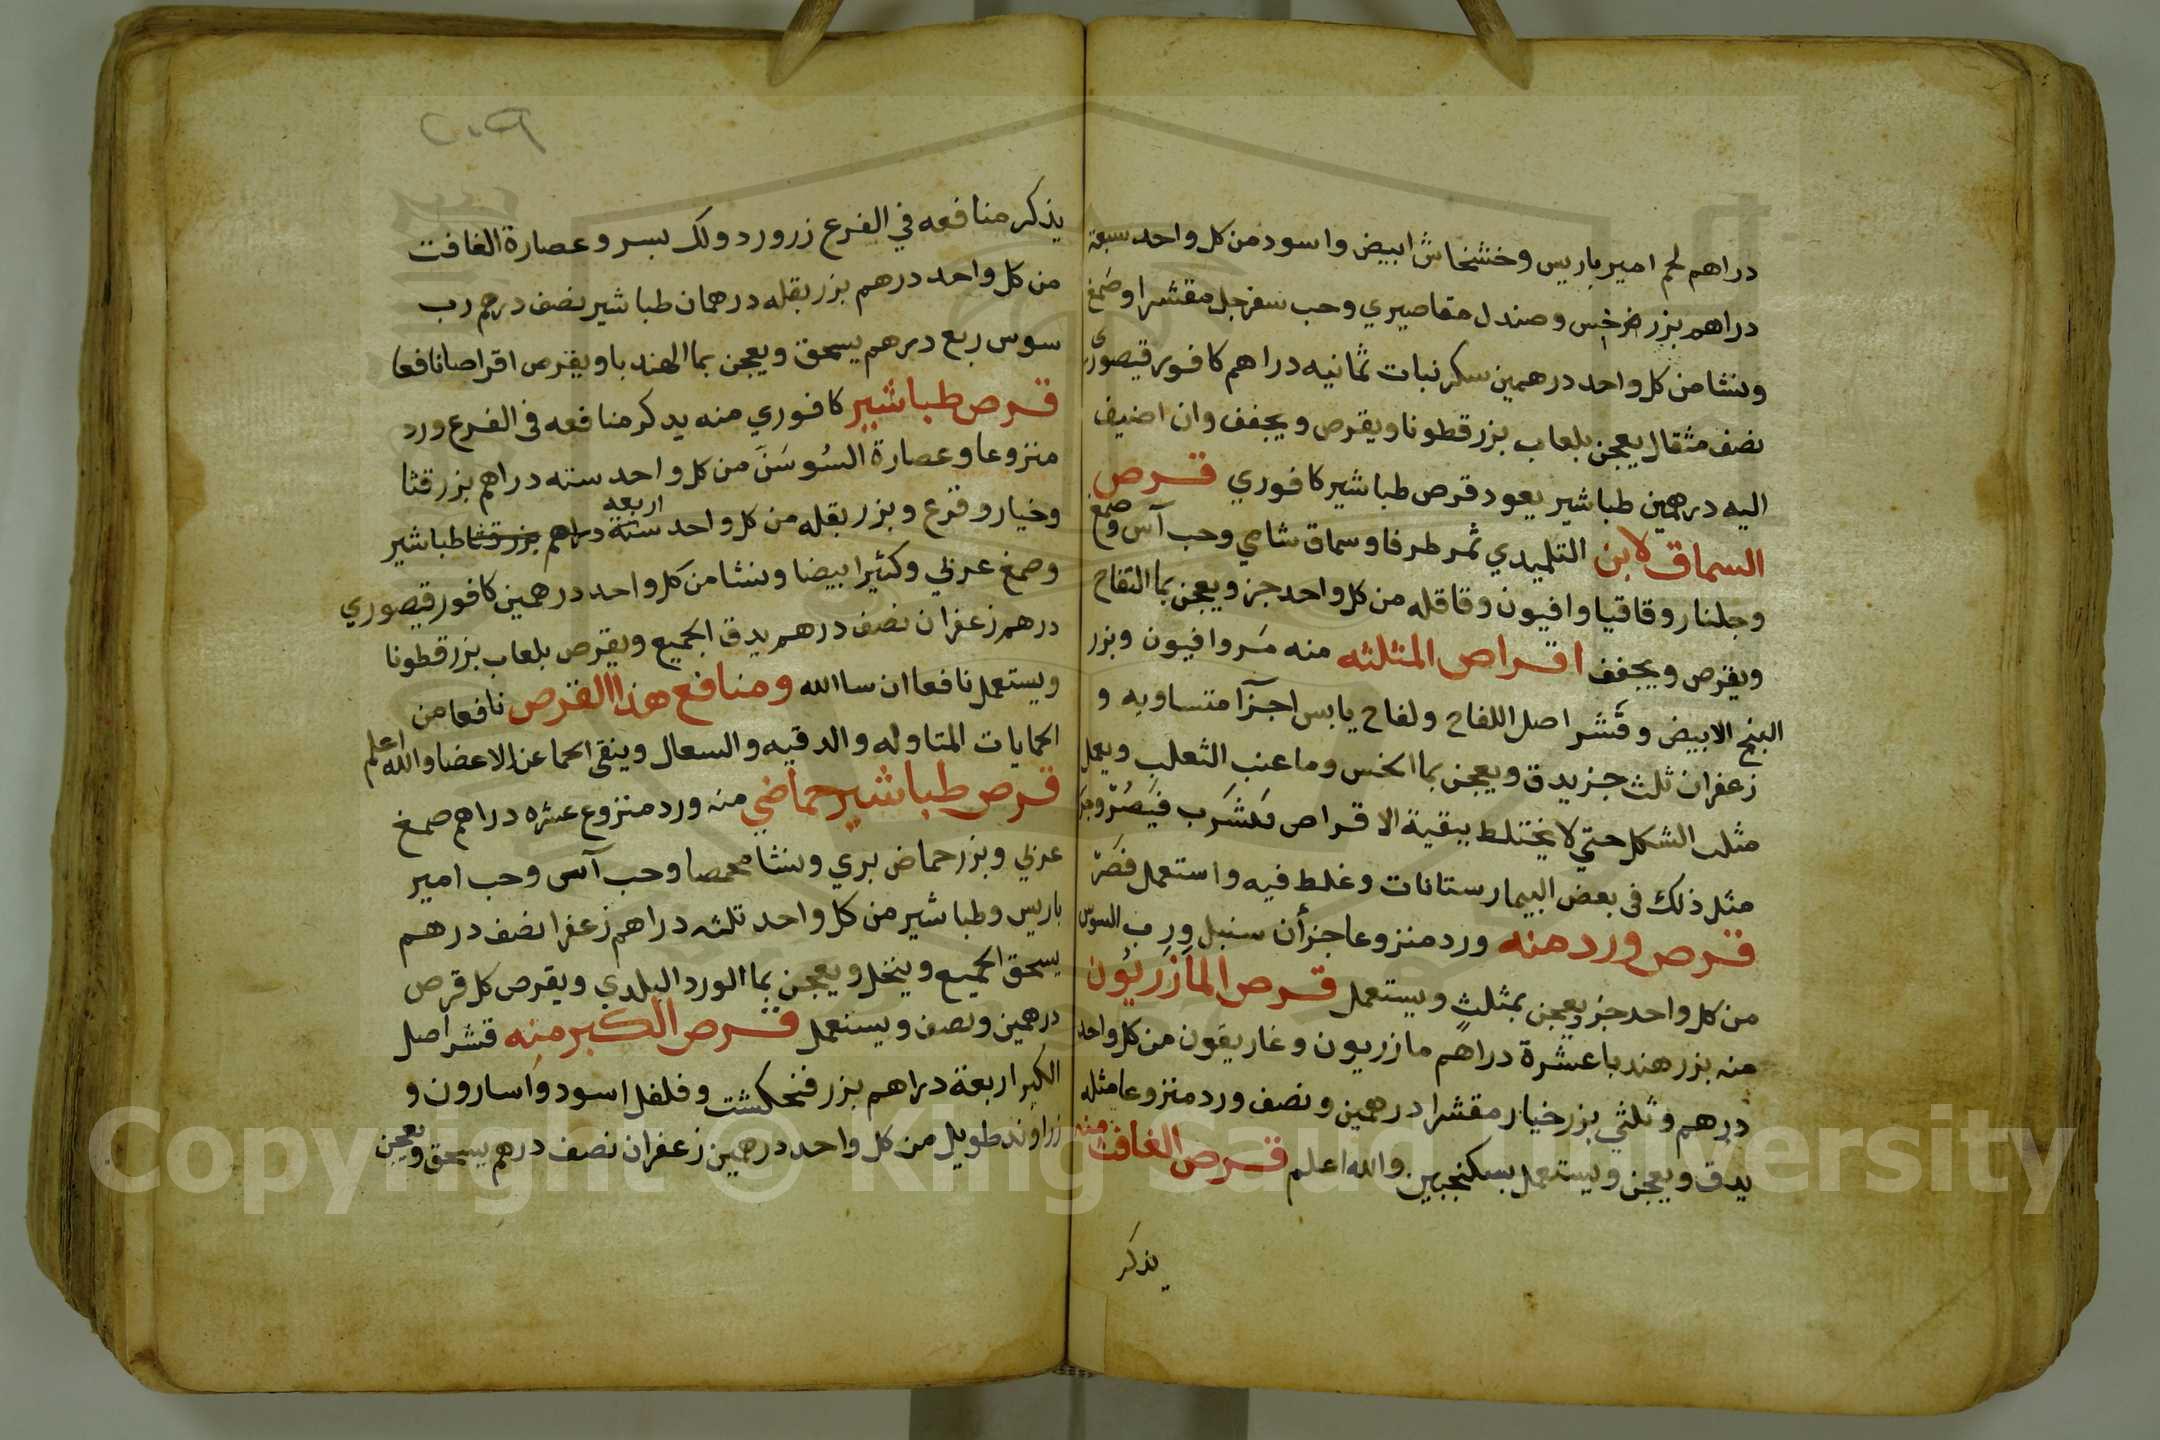 دراهم لحم امير باريس وخشخاش ابيض واسود من كل واحد سبعة
دراهم بزر خس وصندل مقاصيري وحب سفرجل مقشرا وصمغ
ونشا من كل واحد درهمين سكر نبات ثمانيه دراهم كافور قيصوري
نصف مثقال يعجن بلعاب بزر قطونا ويقرص ويجفف وان اضيف
اليه درهمين طباشير يعود قرص طباشير كافوري قرص
السماق لابن التلميدي ثمر طرفا وسماق شامي وحب آس وصمغ
وجلنار وقاقيا وافيون وقاقله من كل واحد جز ويعجن بما التفاح
ويقرص ويجفف اقراص المثلثه منه مر وافيون وبزر
البنج الابيض وقشر اصل اللفاح ولفاح يابس اجزآ متساويه و
زعفران ثلث جز يدق ويعجن بما الخس وما عنب الثعلب ويعمل
مثلث الشكل حتي لا يختلط ببقية الاقراص فيشرب فيضر وجرا
مثل ذلك في بعض البيمارستانات وغلط فيه واستعمل فضر
قرص ورد منه ورد منزوعا جزأن سنبل ورب السوس
من كل واحد جز ويعجن بمثلث ويستعمل قرص المازريون
منه بزر هندبا عشرة دراهم مازريون وغاريقون من كل واحد
درهم وثلثي بزر خيار مقشرا درهمين ونصف ورد منزوعا مثله
يدق ويعجن ويستعمل بسكنجبين والله اعلم قرص الغافت منه
يذكر
٢٠٩
يذكر منافعه في الفرع زر ورد ولك بسر وعصارة الغافت
من كل واحد درهم بزر بقله درهمان طباشير نصف درهم رب
سوس ربع درهم يسحق ويعجن بما الهندبا ويقرص اقراصا نافعا
قرص طباشير كافوري منه يدكر منافعه في الفرع ورد
منزوعا وعصارة السوسن من كل واحد سته دراهم بزر قثا
وخيار وقرع وبزر بقله من كل واحد ستة اربعه دراهم بزر قثا طباشير
وصمغ عربي وكثيرا بيضا ونشا من كل واحد درهمين كافور قيصوري
درهم زعفران نصف درهم يدق الجميع ويقرص بلعاب بزر قطونا
ويستعمل نافعا ان سا الله ومنافع هذا القرص نافعا من
الحمايات المتاوله والدقيه والسعال وينقي الحما عن الاعضا والله اعلم
قرص طباشير حماضي منه ورد منزوع عشره دراهم صمغ
عربي وبزر حماض بري ونشا محمصا وحب آس وحب امير
باريس وطباشير من كل واحد ثلثه دراهم زعفرا نصف درهم
يسحق الجميع وينخل ويعجن بما الورد البلدي ويقرص كل قرص
درهمين ونصف ويستعمل قرص الكبر منه قشر اصل
الكبر اربعة دراهم بزر فنجكشت وفلفل اسود واسارون و
زراوند طويل من كل واحد درهمين زعفران نصف درهم يسحق ويعجن
Copyright © King Saud University